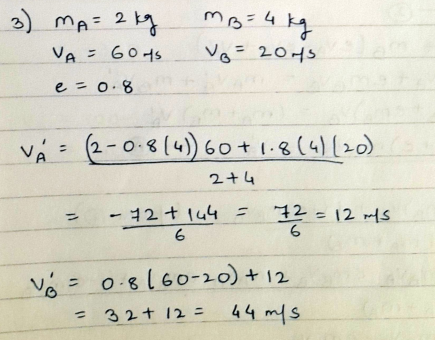 3) mA = 2 kg mB = 4 kg
vA = 60 m/s vB = 20 m/s
e = 0.8
vA' = (2-0.8(4))60 + 1.8(4)(20) / 2+4
= -72+144 / 6 = 72/6 = 12 m/s
vB' = 0.8(60-20)+12
= 32+12 = 44 m/s